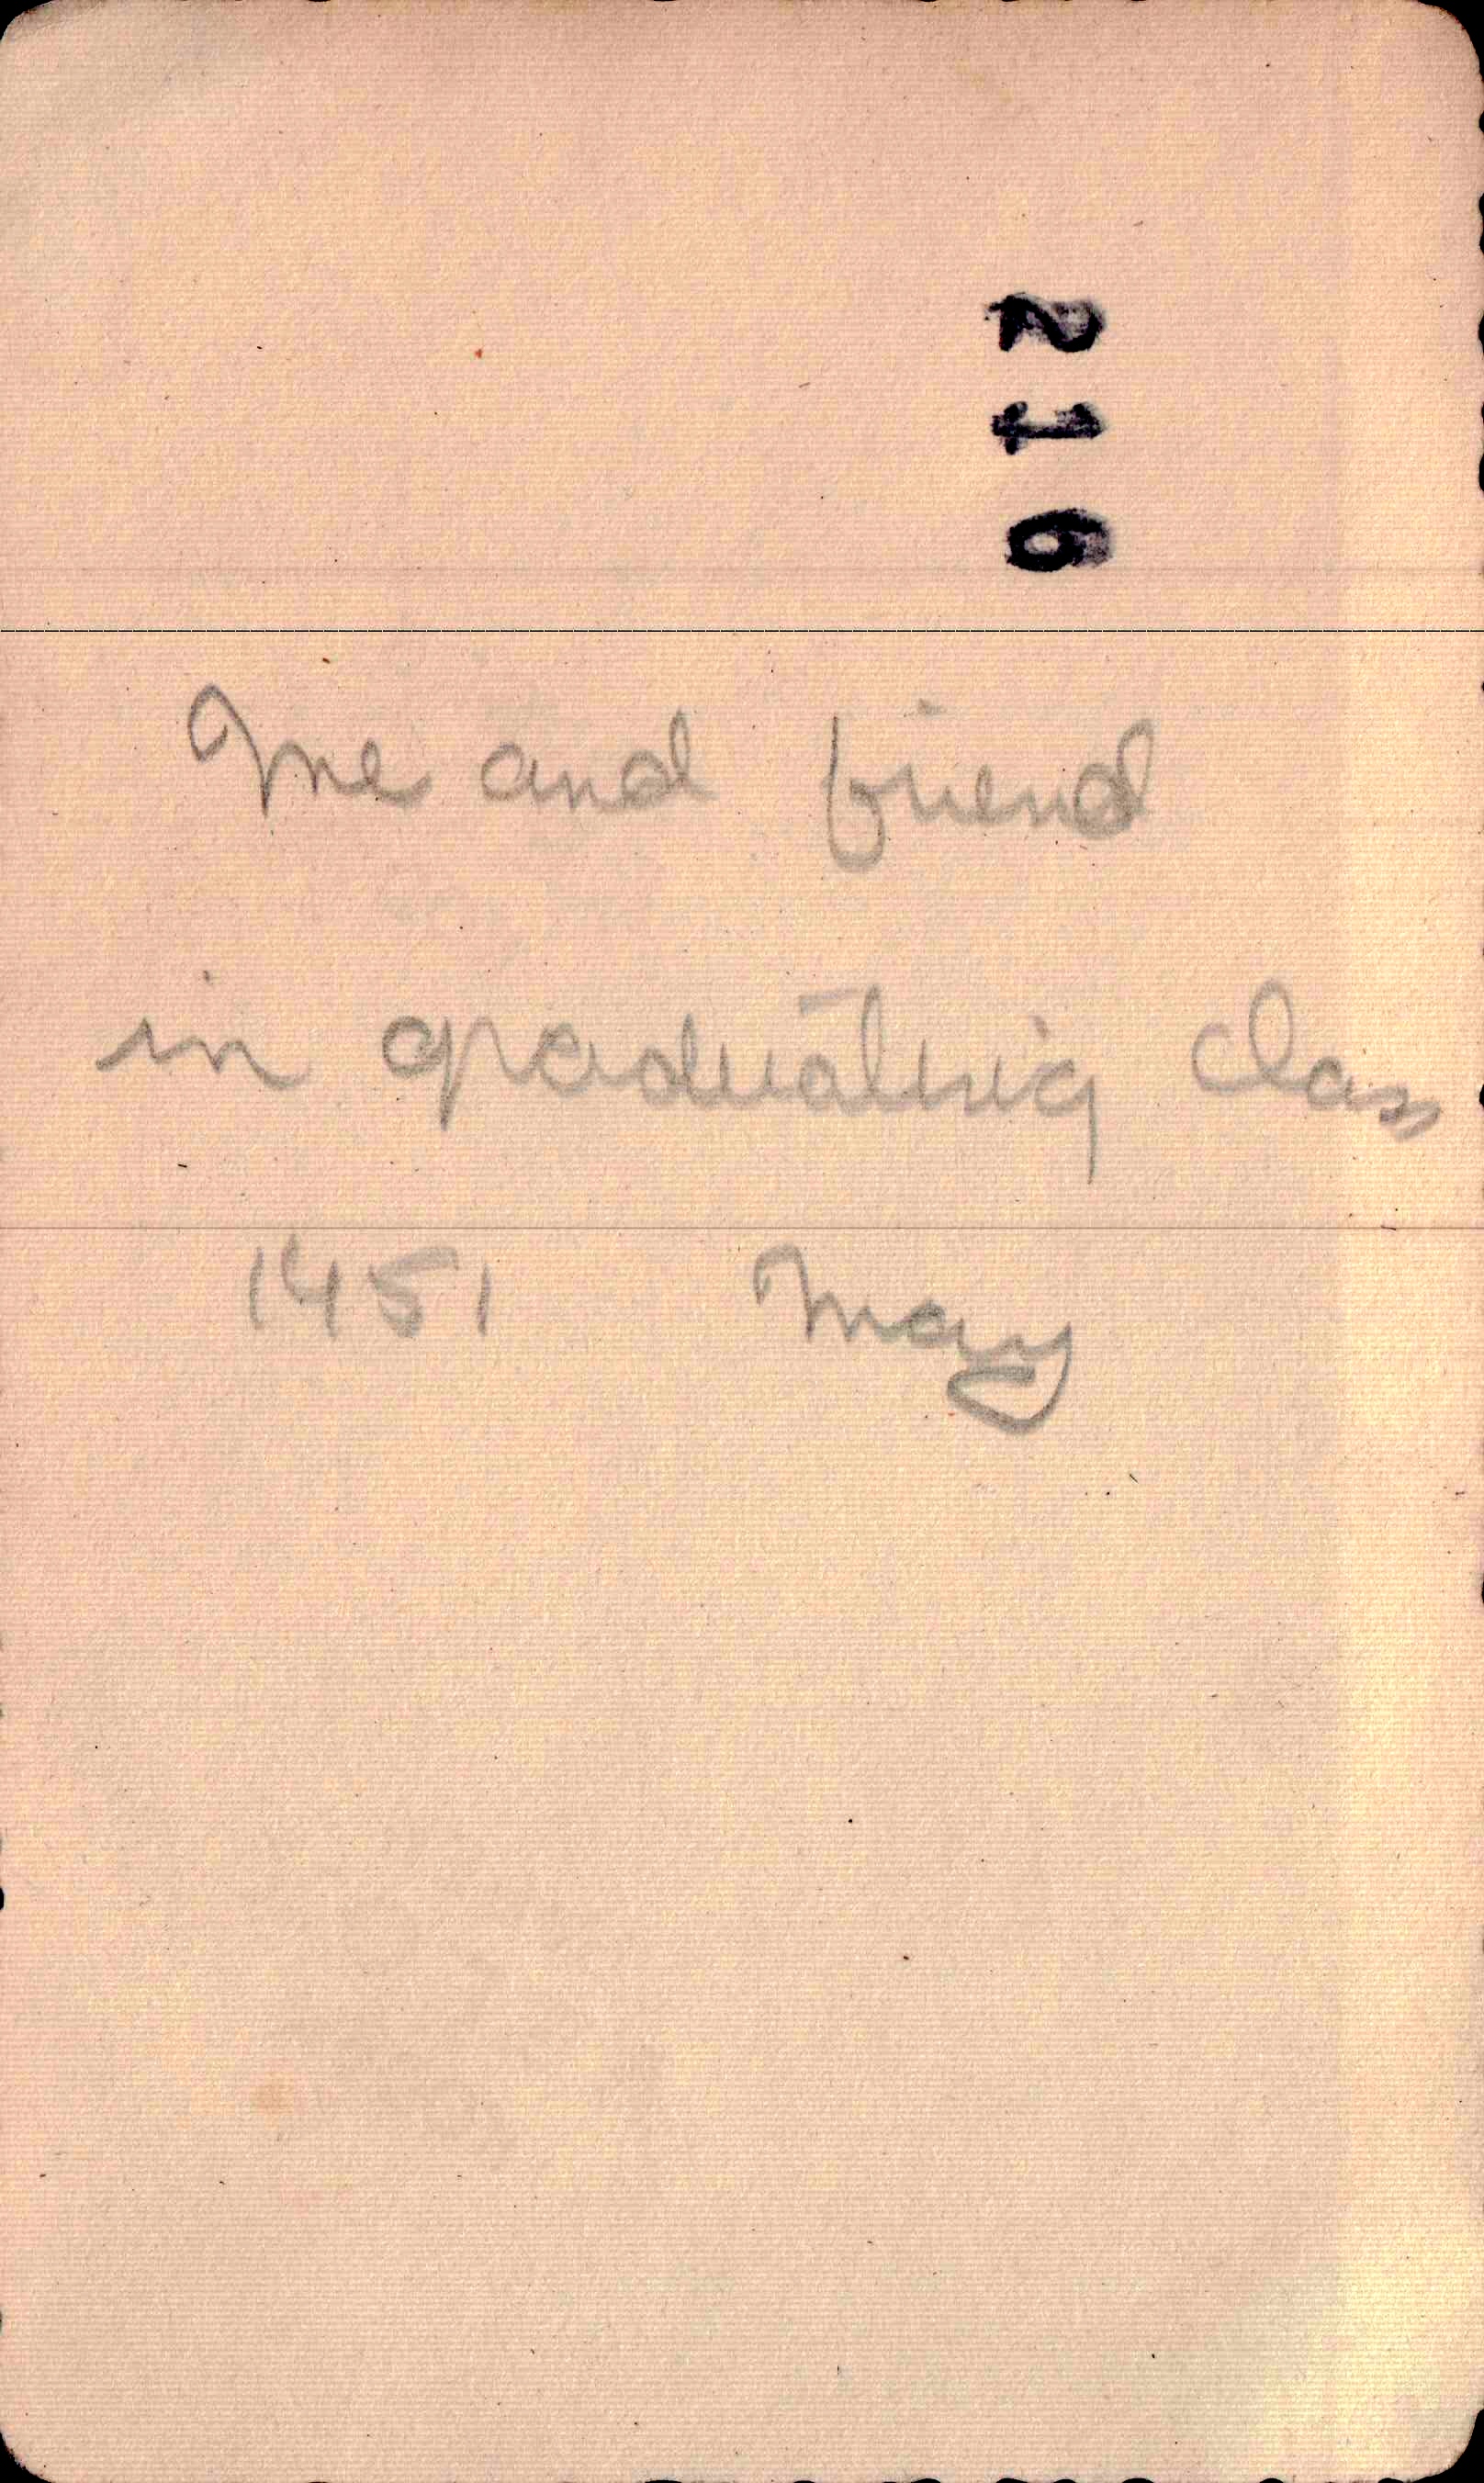 216
Me and friend
in graduating class
1451 May